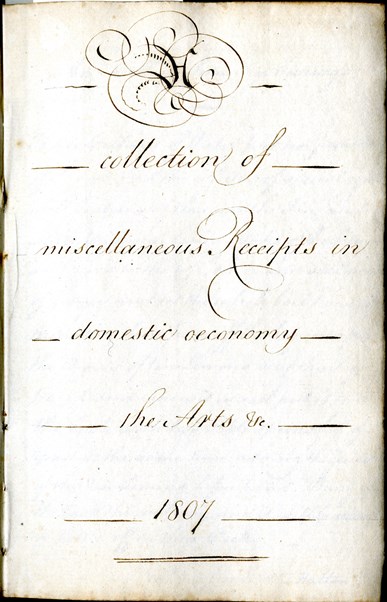 A
collection of
miscellaneous Receipts in
domestic oeconomy
the Arts &c.
1807